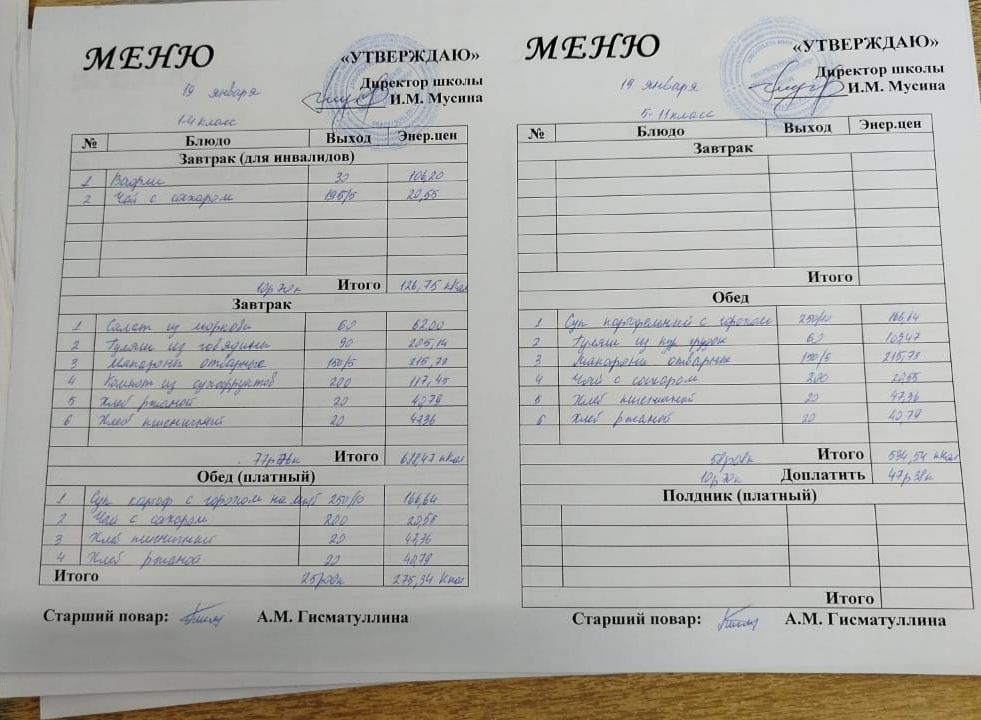 МЕНЮ
«УТВЕРЖДАЮ»
Директор школы
И.М. Мусина
19 января
1-4 класс
№ Блюдо Выход Энер.цен
Завтрак (для инвалидов)
1 Вафли 30 106,20
2 Чай с сахаром 195/5 20,55
10р70к Итого 126,75 кКал
Завтрак
1 Салат из моркови 60 62.00
2 Гуляш из говядины 90 205,14
3 Макароны отварные 150/5 215,78
4 Компот из сухофруктов 200 117,45
5 Хлеб ржаной 20 40,79
6 Хлеб пшеничный 20 47,36
Итого
Обед (платный)
1 Суп картоф с горохом на 250/10 166,64
2 Чай с сахаром 200 20,55
3 Хлеб пшеничный 20 47,36
4 Хлеб ржаной 20 40,79
Итого 25р00к 275,34 Ккал
Старший повар: А.М. Гисматуллина
МЕНЮ
«УТВЕРЖДАЮ»
Директор школы
И.М. Мусина
19 января
5-11 класс
№ Блюдо Выход Энер.цен
Завтрак
Итого
Обед
1 Суп картофельный с горохом 250/10 166,64
2 Гуляш из кур грудок 60 103,47
3 Макароны отварные 150/5 215,78
4 Чай с сахаром 200 20,55
5 Хлеб пшеничный 20 47,36
6 Хлеб ржаной 20 40,79
Итого 594,54 кКал
10р70к Доплатить 47р38к
Полдник (платный)
Итого
Старший повар: А.М. Гисматуллина